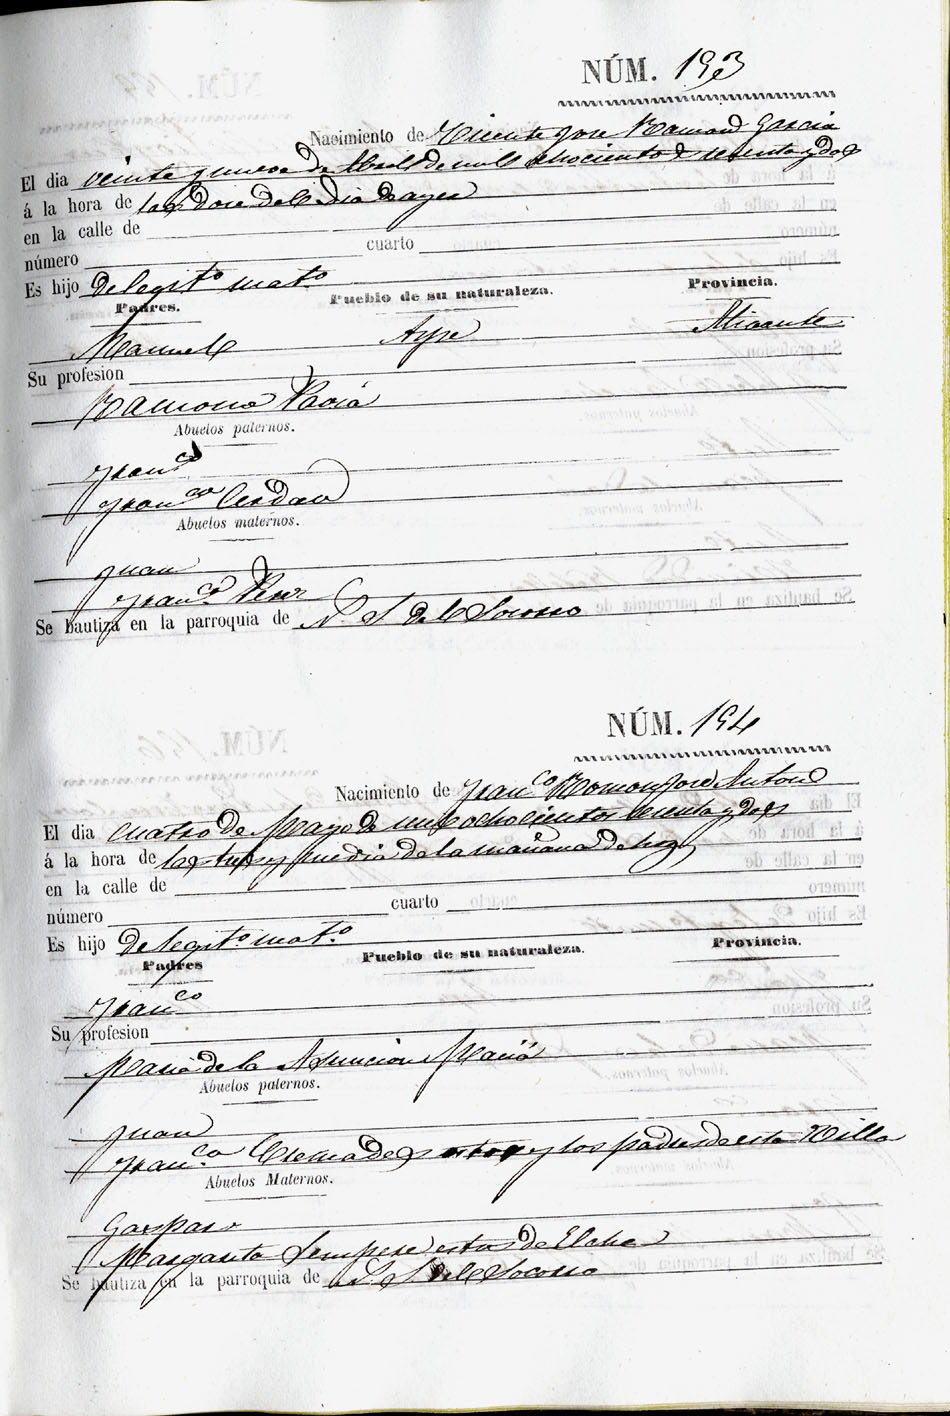 NÚM. 193
Nacimiento de Vicente Jose Ramon Garcia
El dia veinte y nueve de Abril de mil ochocientos setenta y dos
á la hora de las doce del dia de ayer
en la calle de
número cuarto
Es hijo de legit.º mat.º
Padres. Pueblo de su naturaleza. Provincia.
Manuel Aspe Alicante
Su profesion
Ramona Pavia
Abuelos paternos.
Fran.co
Fran.ca Cerdan
Abuelos maternos.
Juan
Fran.ca Perez
Se bautiza en la parroquia de N. S. del Socorro
NÚM. 194
Nacimiento de Fran.co Ramon José Antonio
El dia cuatro de Mayo de mil ochocientos setenta y dos
á la hora de las tres y media de la mañana de hoy
en la calle de
número cuarto
Es hijo de legit.º mat.º
Padres Pueblo de su naturaleza. Provincia.
Fran.co
Su profesion
Maria de la Asuncion Maciá
Abuelos paternos.
Juan
Fran.ca Cremades estos y los padres de esta Villa
Abuelos Maternos.
Gaspar
Margarita Sempere estos de Elche
Se bautiza en la parroquia de N. S. del Socorro